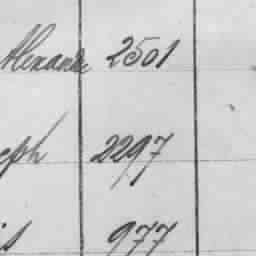 Alexander 2501
eph 2297
is 977